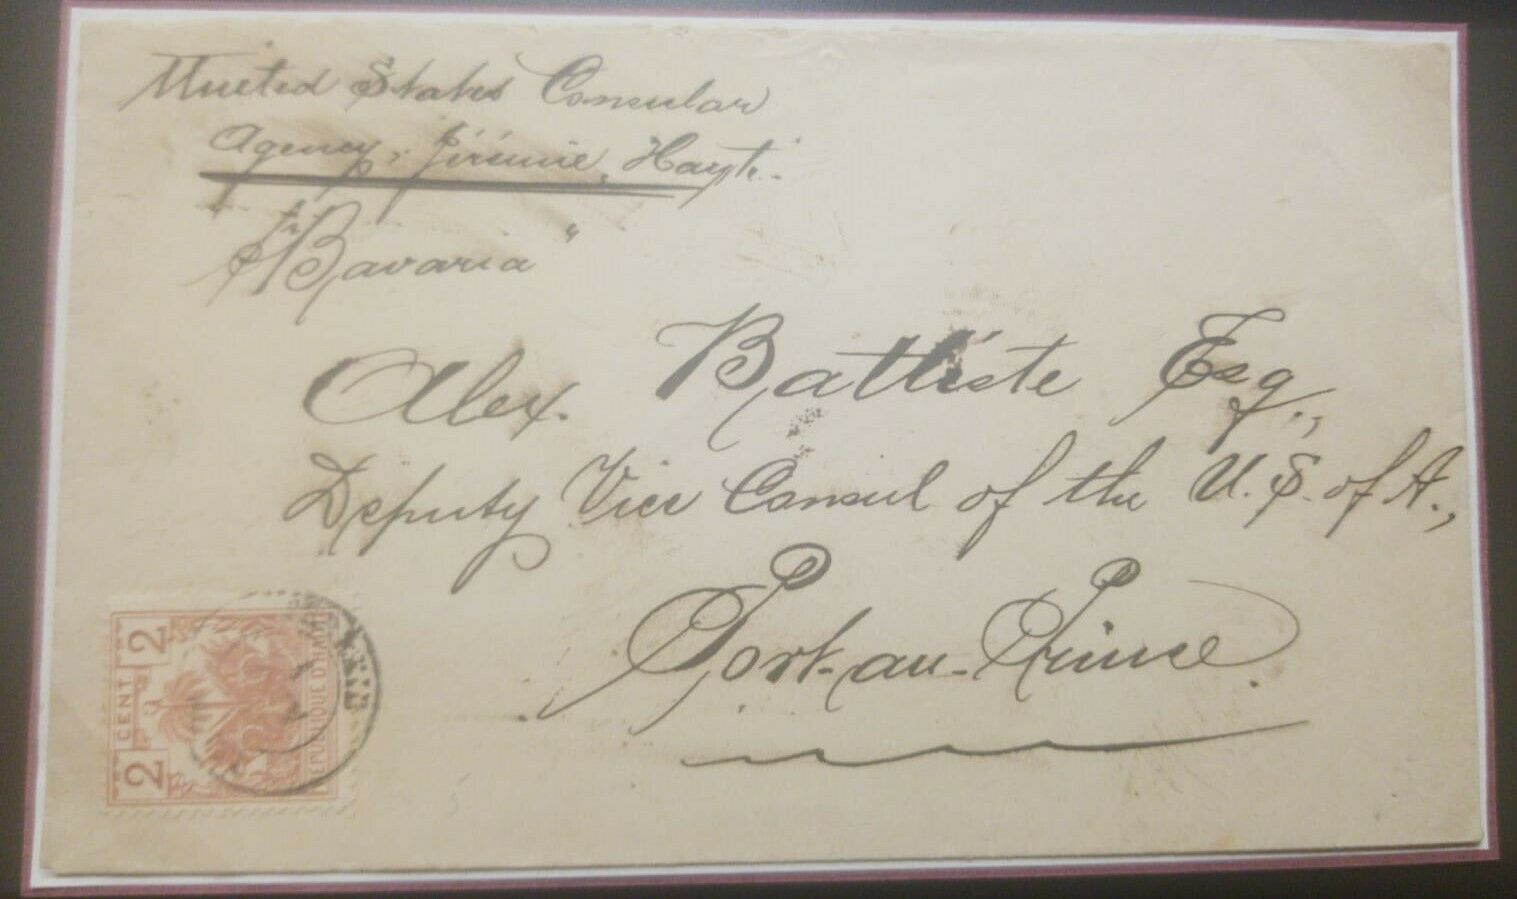 United States Consular
Agency, Jérémie, Hayti.
pr "Bavaria"
Alex. Battiste Esq.,
Deputy Vice Consul of the U.S. of A.,
Port-au-Prince.
2 CENT 2
REPUBLIQUE D'HAITI